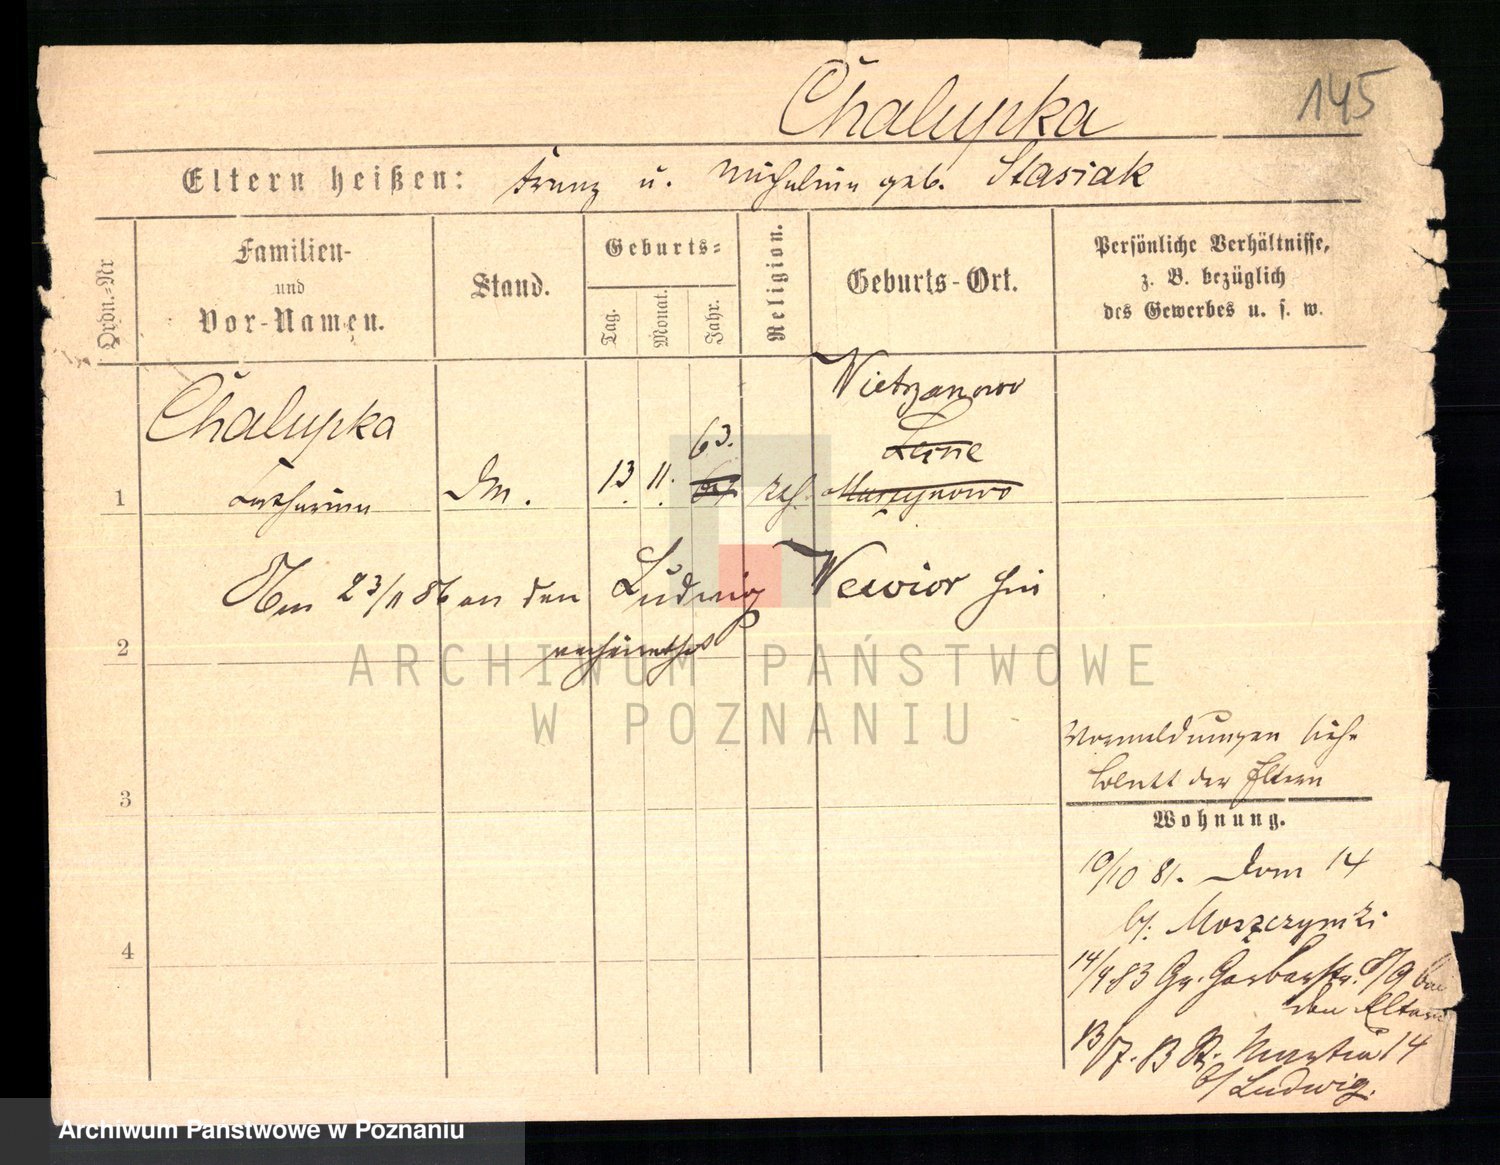 Chalupka
145
Eltern heißen: Franz u. Michalina geb. Stasiak
Ordn.-Nr
Familien-
und
Vor-Namen.
Stand.
Geburts-
Tag.
Monat.
Jahr.
Religion.
Geburts-Ort.
Persönliche Verhältnisse,
z. B. bezüglich
des Gewerbes u. s. w.
Wietrzanowo
Chalupka
63.
1
Catharina
Dm.
13.
11.
Am 23/11 86 an den Ludwig Wewior hier
2
verheirathet
Vormeldungen siehe
Blatt der Eltern
3
Wohnung.
10/10 81. Dom 14
b/. Moszczynski
4
14/9 83 Gr. Gerberstr. 8/9 bei
den Eltern
13/7. St. Martin 14
b/ Ludwig.
ARCHIWUM PAŃSTWOWE
W POZNANIU
Archiwum Państwowe w Poznaniu